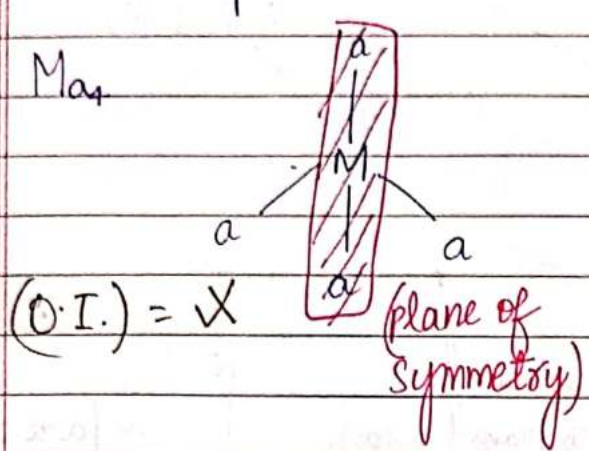 a
Ma₄
M
a a
a
(O.I.) = X (plane of
symmetry)